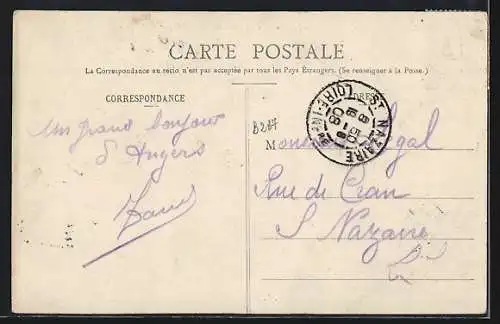 CARTE POSTALE
La Correspondance au recto n'est pas acceptée par tous les Pays Étrangers. (Se renseigner à la Poste.)
CORRESPONDANCE
ADRESSE
Un grand bonjour
d'Angers
B207
ST NAZAIRE
LOIRE-INFRE
8 50
08
Monsieur Legal
Rue de
S. Nazaire